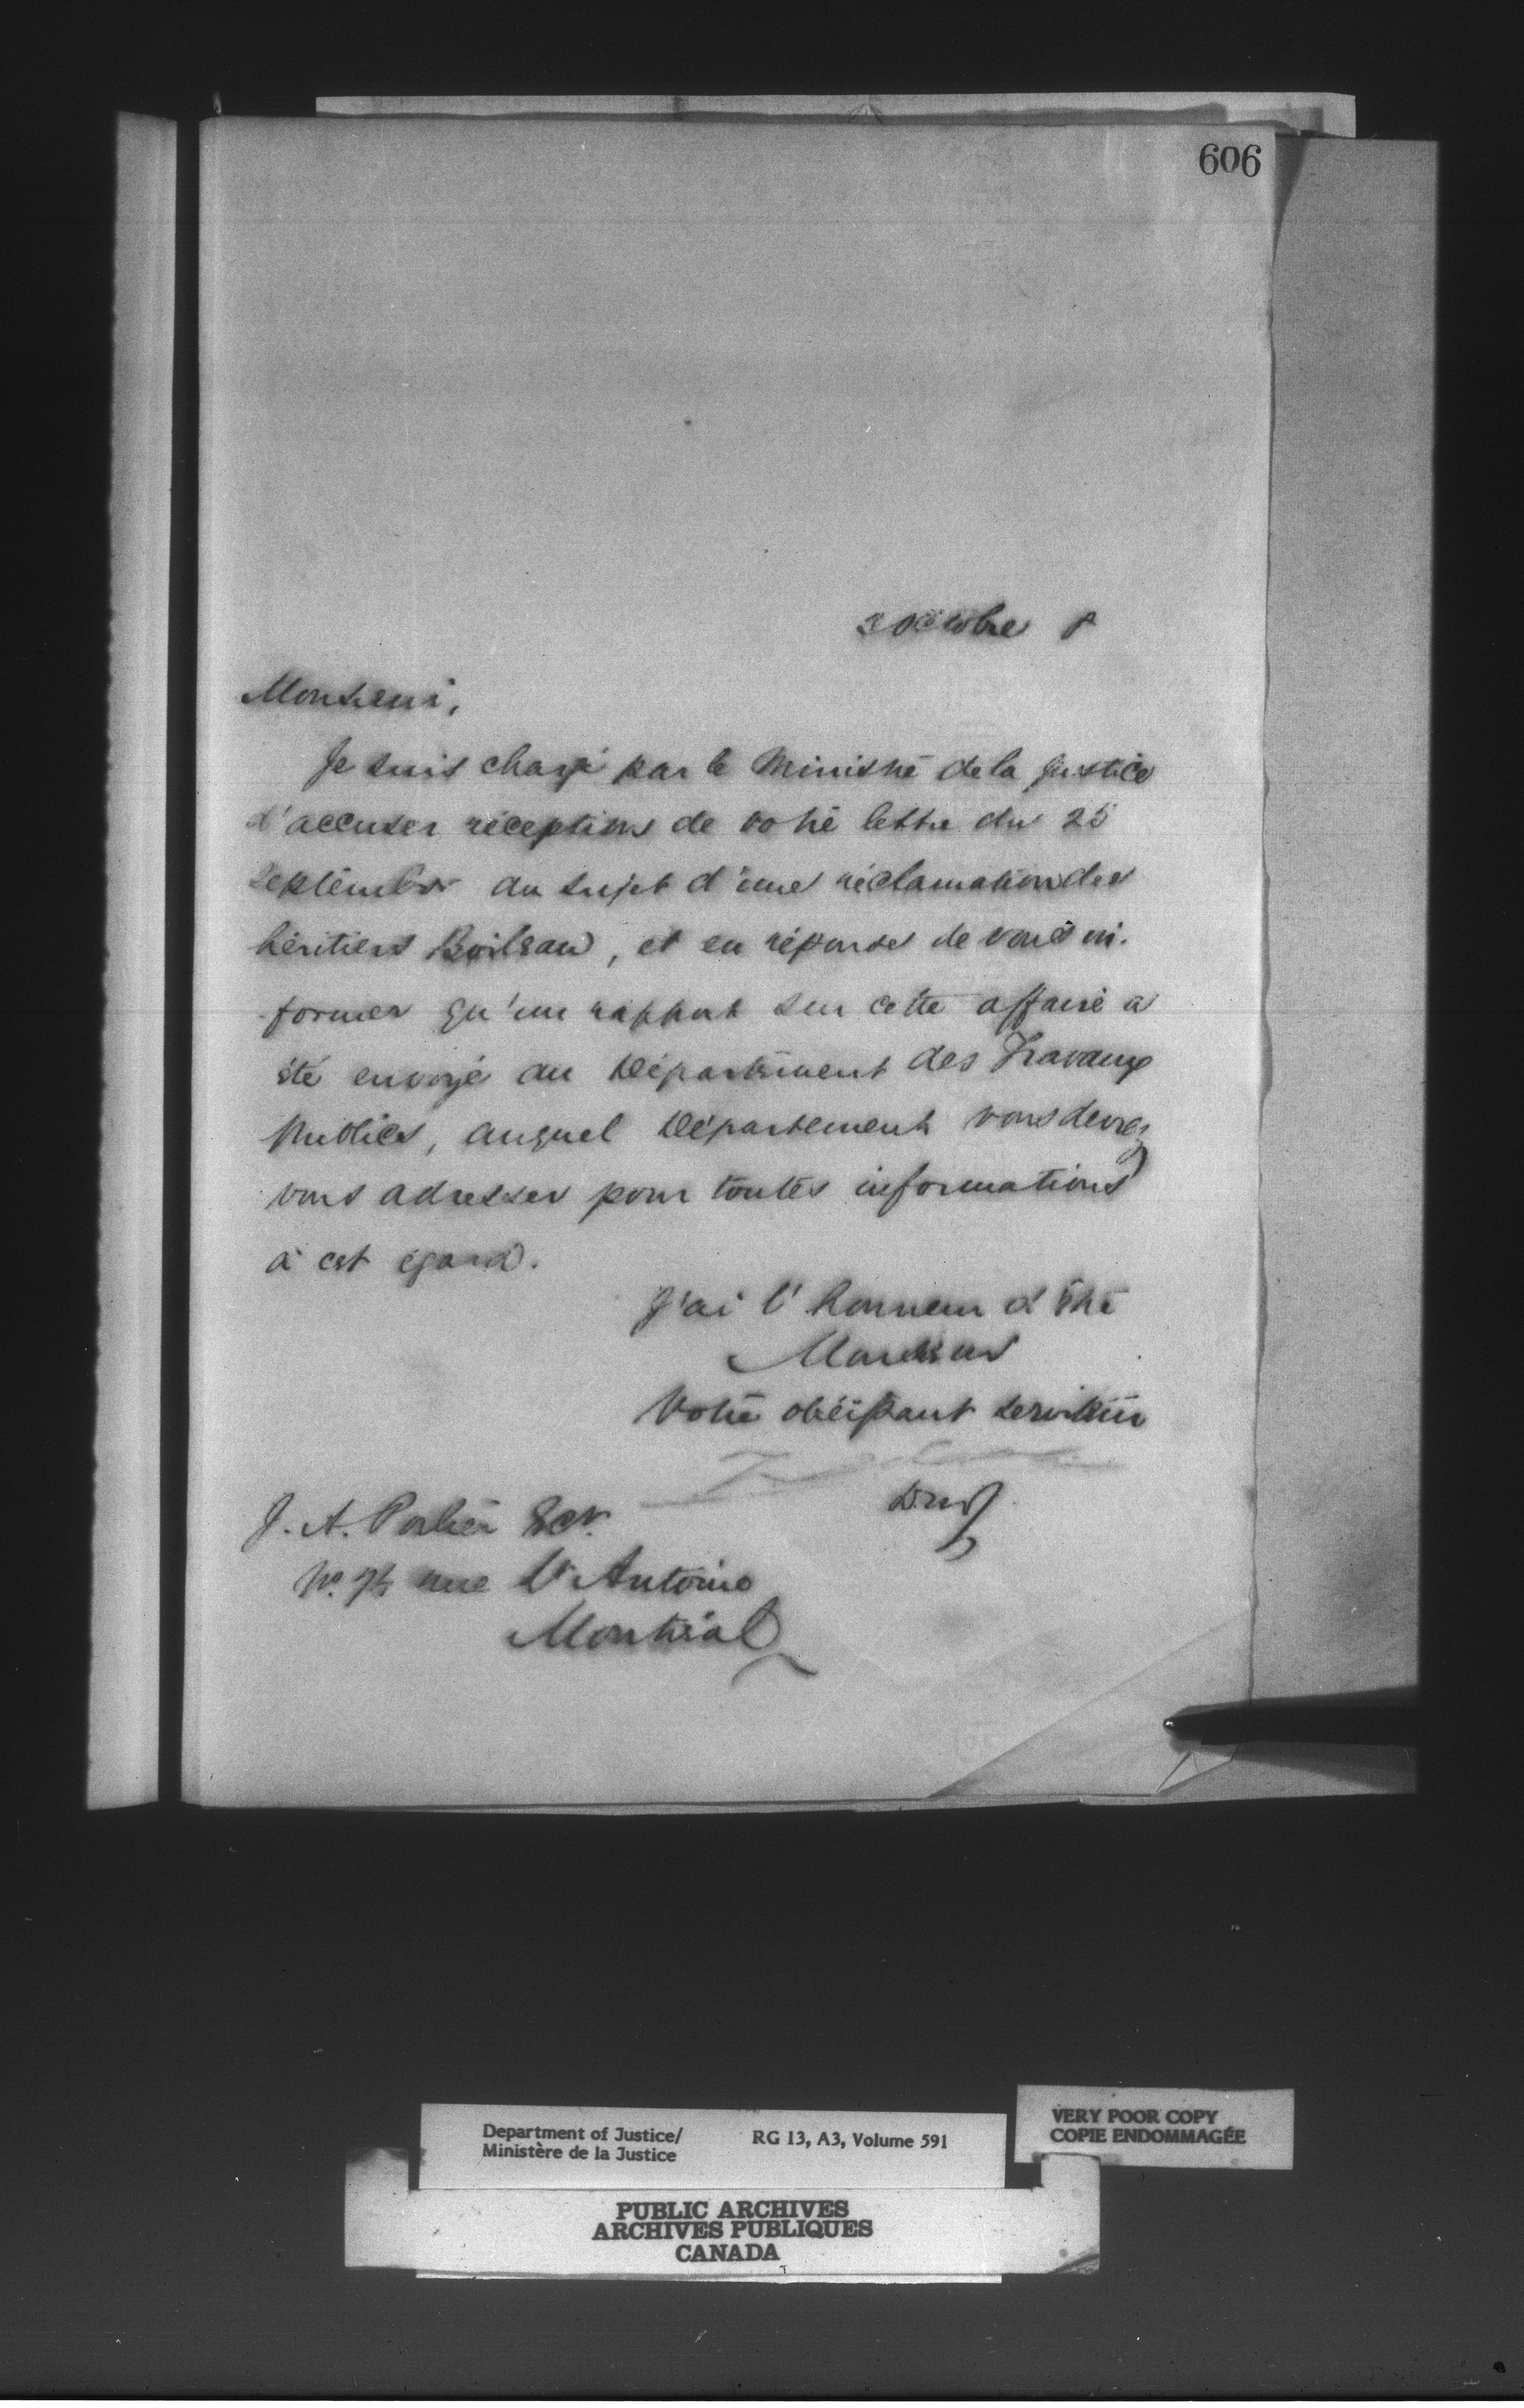 606
2 octobre
Monsieur,
Je suis chargé par le Ministre de la Justice
d'accuser réception de votre lettre du 25
Septembre au sujet d'une réclamation des
héritiers Boileau, et en réponse de vous in-
former qu'un rapport sur cette affaire a
été envoyé au Département des Travaux
Publics, auquel Département vous devez
vous adresser pour toutes informations
à cet égard.
J'ai l'honneur d'être
Monsieur
Votre obéissant serviteur
J. A. Ecr.
No. 74 rue St Antoine
Montréal
Department of Justice/
Ministère de la Justice
RG 13, A3, Volume 591
VERY POOR COPY
COPIE ENDOMMAGÉE
PUBLIC ARCHIVES
ARCHIVES PUBLIQUES
CANADA